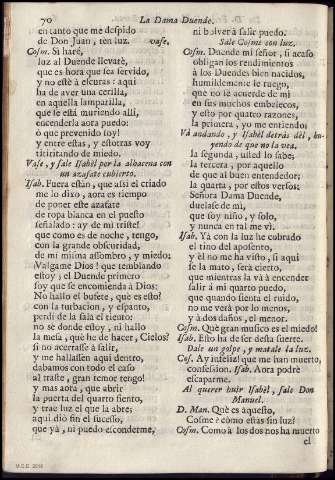 70
La Dama Duende.
en tanto que me despido
de Don Juan, ten luz. vase.
Cosm. Si haré,
luz al Duende llevaré,
que es hora que sea servido,
y no esté à escuras: aqui
ha de aver una cerilla,
en aquella lamparilla,
que se està muriendo alli,
encenderla aora puedo:
ò que prevenido soy!
y entre estas, y estotras voy
titiritando de miedo.
Vase, y sale Isabèl por la alhacena con
un azafate cubierto.
Isab. Fuera estàn, que assi el criado
me lo dixo, aora es tiempo
de poner este azafate
de ropa blanca en el puesto
señalado: ay de mi triste!
que como es de noche, tengo,
con la grande obscuridad,
de mi misma assombro, y miedo:
Valgame Dios! que temblando
estoy; el Duende primero
soy que se encomienda à Dios:
No hallo el bufete, què es esto?
con la turbacion, y espanto,
perdì de la sala el tiento:
no sè donde estoy, ni hallo
la mesa, què he de hacer, Cielos?
si no acertasse à salir,
y me hallassen aqui dentro,
dabamos con todo el caso
al traste, gran temor tengo!
y mas aora, que abrir
la puerta del quarto siento,
y trae luz el que la abre;
aqui diò fin el sucesso,
que yà, ni puedo esconderme,
ni bolver à salir puedo.
Sale Cosme con luz.
Cosm. Duende mi señor, si acaso
obligan los rendimientos
à los Duendes bien nacidos,
humildemente le ruego,
que no se acuerde de mi
en sus muchos embelecos,
y esto por quatro razones,
la primera, yo me entiendo:
Và andando, y Isabèl detràs dèl, huyendo
de que no la vea.
la segunda, usted lo sabe;
la tercera, por aquello
de que al buen entendedor;
la quarta, por estos versos:
Señora Dama Duende,
duelase de mi,
que soy niño, y solo,
y nunca en tal me vi.
Isab. Yà con la luz he cobrado
el tino del aposento,
y èl no me ha visto, si aqui
se la mato, serà cierto,
que mientras la và à encender
salir à mi quarto puedo,
que quando sienta el ruido,
no me verà por lo menos,
y à dos daños, el menor.
Cosm. Què gran musico es el miedo!
Isab. Esto ha de ser desta suerte.
Dale un golpe, y matale la luz.
Cos. Ay infelìz! que me han muerto,
confession. Isab. Aora podrè
escaparme.
Al querer huir Isabèl, sale Don
Manuel.
D. Man. Què es aquesto,
Cosme? còmo estàs sin luz?
Cosm. Como à los dos nos ha muerto
el